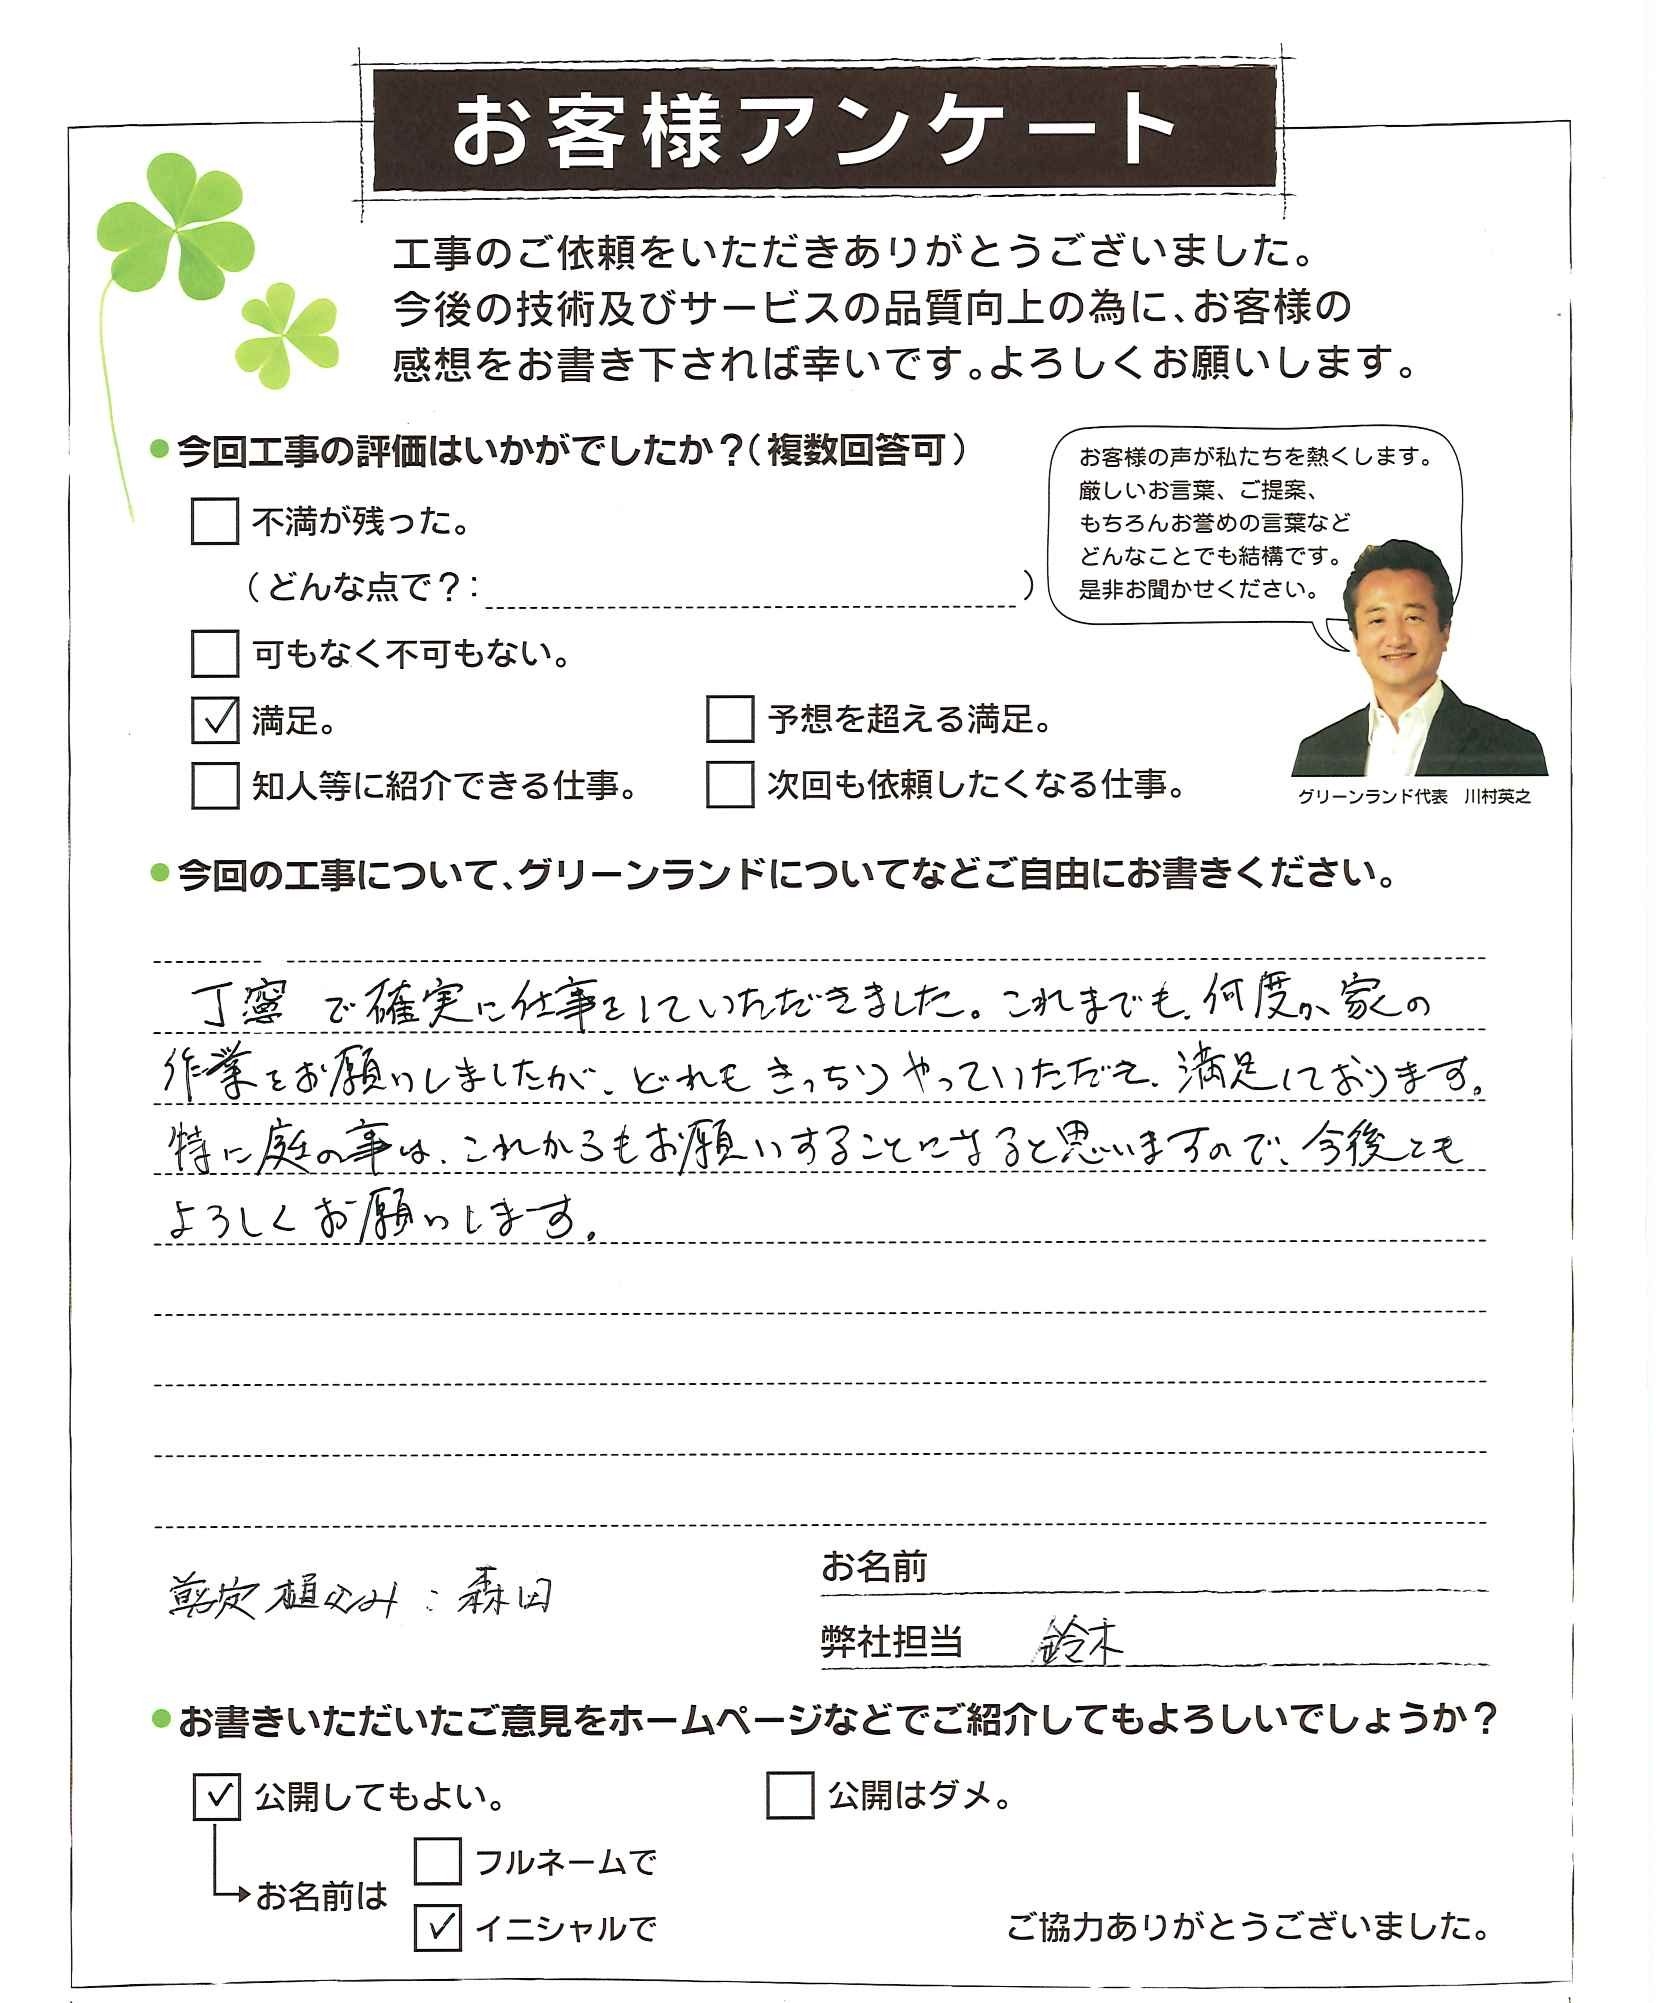 お客様アンケート
工事のご依頼をいただきありがとうございました。
今後の技術及びサービスの品質向上の為に、お客様の
感想をお書き下されば幸いです。よろしくお願いします。
今回工事の評価はいかがでしたか？（複数回答可）
不満が残った。
（どんな点で？： ）
可もなく不可もない。
✓ 満足。 予想を超える満足。
知人等に紹介できる仕事。 次回も依頼したくなる仕事。
お客様の声が私たちを熱くします。
厳しいお言葉、ご提案、
もちろんお誉めの言葉など
どんなことでも結構です。
是非お聞かせください。
グリーンランド代表　川村英之
今回の工事について、グリーンランドについてなどご自由にお書きください。
丁寧で確実に仕事をしていただきました。これまでも、何度か家の
作業をお願いしましたが、どれもきっちりやっていただき、満足しております。
特に庭の事は、これからもお願いすることになると思いますので、今後とも
よろしくお願いします。
剪定植込み：森田
お名前
弊社担当 鈴木
お書きいただいたご意見をホームページなどでご紹介してもよろしいでしょうか？
✓ 公開してもよい。 公開はダメ。
お名前は
フルネームで
✓ イニシャルで
ご協力ありがとうございました。